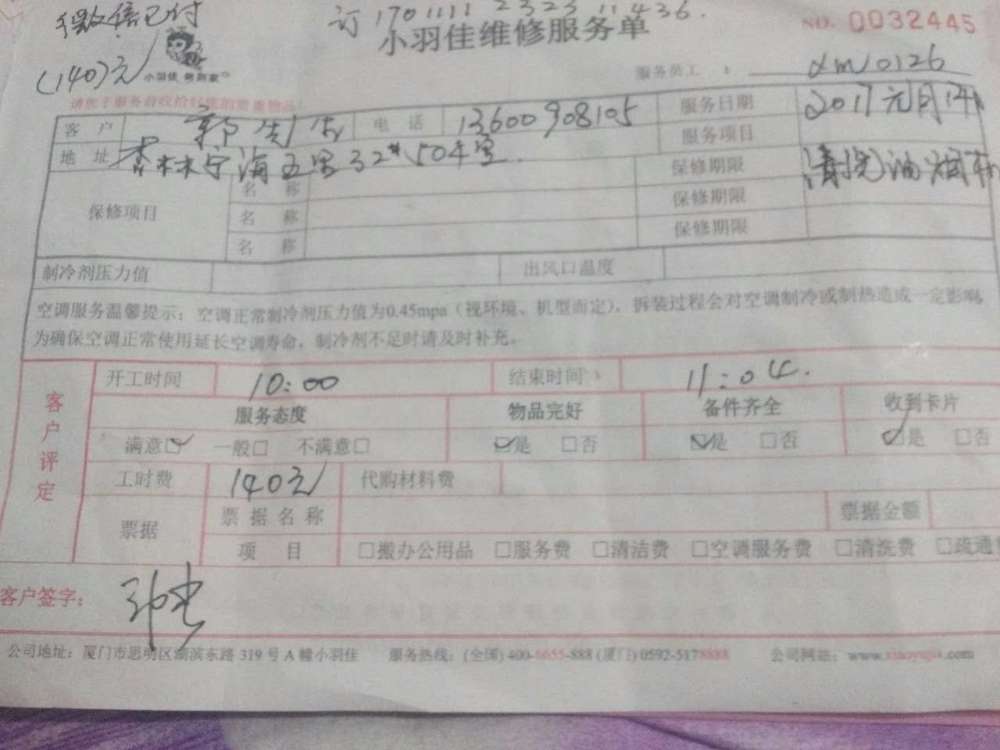 微信已付
订 1701111 2323 11436.
(140)元
小羽佳维修服务单
NO. 0032445
小羽佳 帮到家
服务员工: dm10126
请您于服务前收拾好您的贵重物品!
客户 电话 13600908105 服务日期 2017元月14
地址 杏林宁海五里32# 504室. 服务项目 清洗油烟
保修项目 名称 保修期限
名称 保修期限
名称 保修期限
制冷剂压力值 出风口温度
空调服务温馨提示:空调正常制冷剂压力值为0.45mpa(视环境、机型而定),拆装过程会对空调制冷或制热造成一定影响,
为确保空调正常使用延长空调寿命,制冷剂不足时请及时补充。
客户评定
开工时间 10:00 结束时间 11:04.
服务态度 物品完好 备件齐全 收到卡片
满意☑ 一般□ 不满意□ ☑是 □否 ☑是 □否 ☑是 □否
工时费 140元 代购材料费
票据 票据名称 票据金额
项目 □搬办公用品 □服务费 □清洁费 □空调服务费 □清洗费 □疏通
客户签字:
公司地址:厦门市思明区湖滨东路 319 号 A 幢小羽佳 服务热线:(全国) 400-6655-888 (厦门) 0592-5178888 公司网站:www.xiaoyujia.com